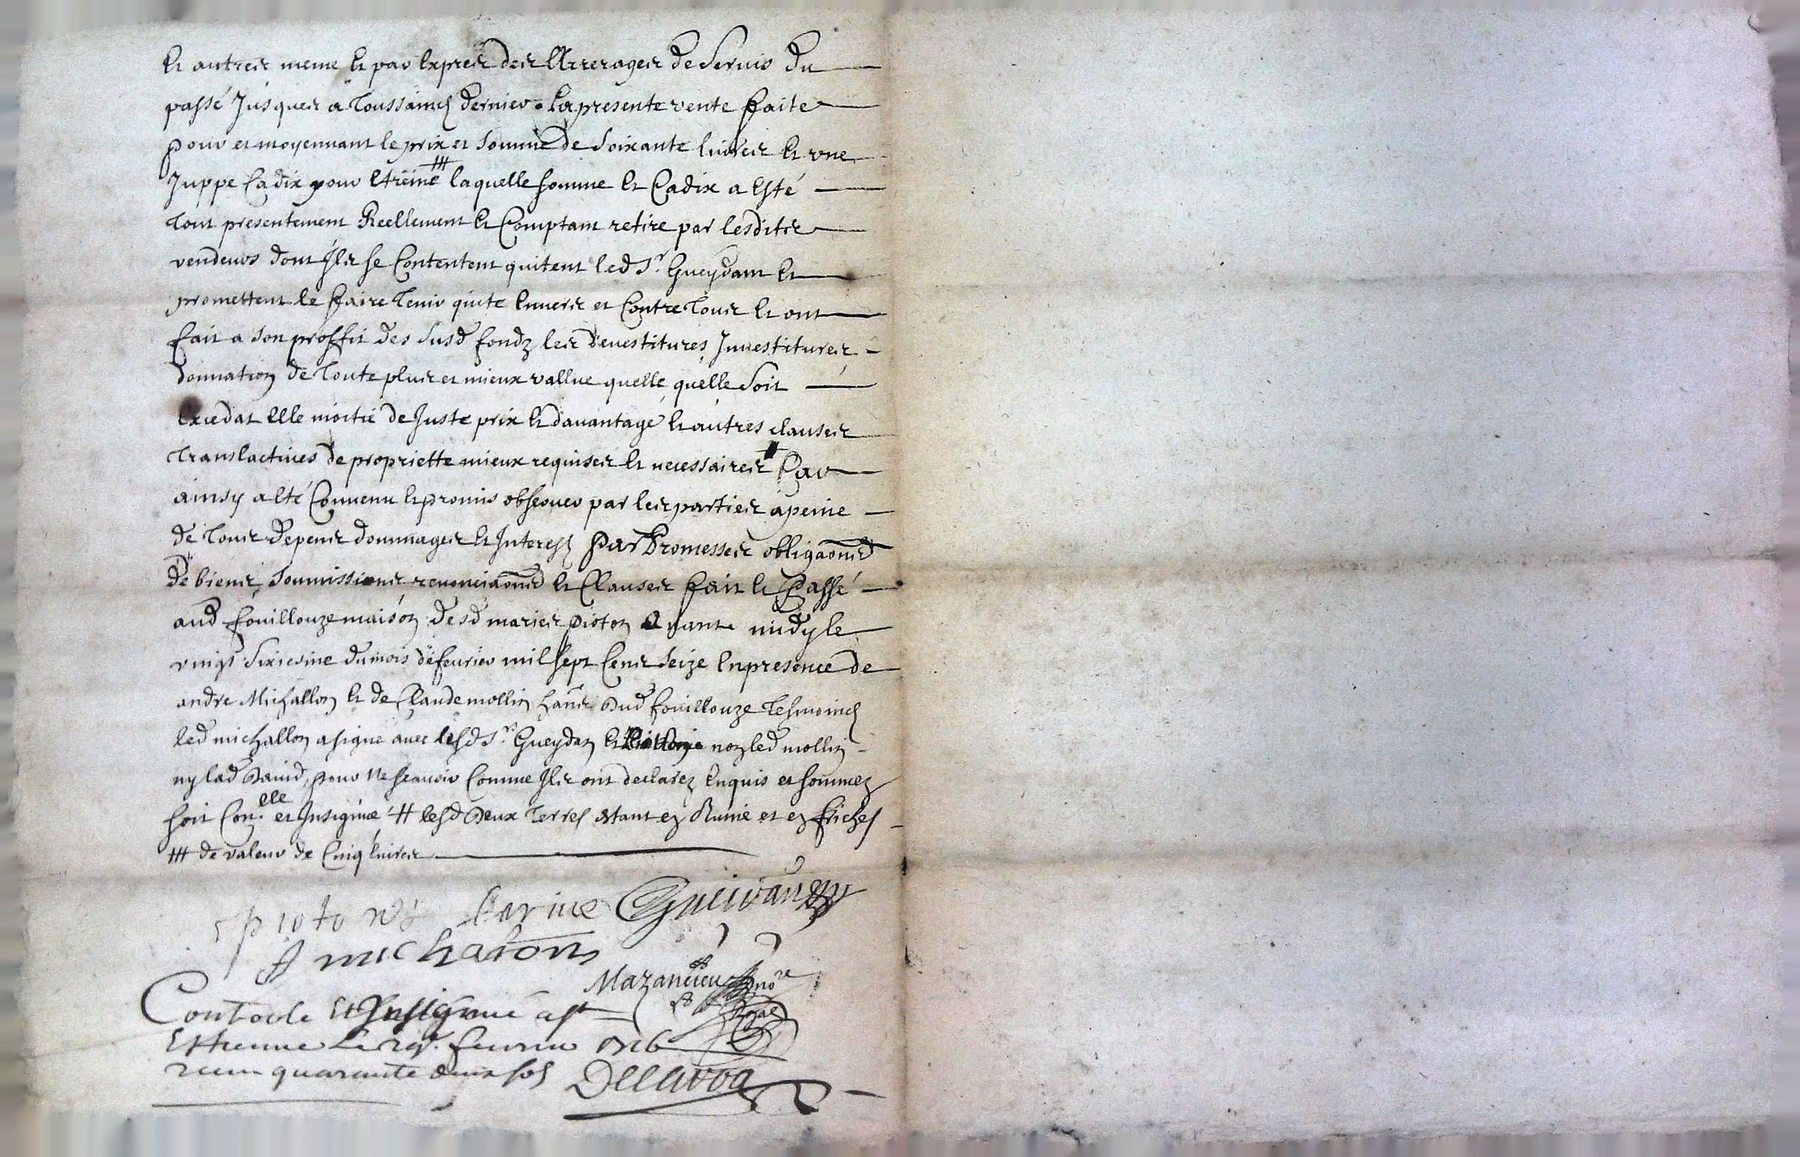 Et autres meme Et par Expres des Arrerages de servis du
passé Jusques a Toussainctz dernier. La presente vente faite
pour et moyennant le prix et somme de soixante livres Et une
Juppe Cadix pour Etreine ## laquelle somme Et Cadix a Esté
tout presentement Reellement Et Comptant retire par lesdits
vendeurs dont Ils se Contentent quitent led Sr Gueydan Et
promettent le faire Tenir quite Envers et Contre Tous Et ont
fait a son proffit des susd fondz les devestitures, Investitures
donnation de toute plus et mieux vallue quelle quelle soit
Excedat Elle moitié de Juste prix Et davantage Et autres clauses
Translactives de propriette mieux requises Et necessaires # Car
ainsy a Eté Convenu Et promis observer par les parties a peine
de tous depens dommages Et Interestz Par Promesses obligaons
de biens soumissions renonciaons Et Clauses fait Et Passé
aud fouillouze maison desd mariés pioton avant midy le
vingt sixiesme du mois de fevrier mil sept Cens seize En presence de
andre Michallon Et de Claude mollin dud fouillouze Tesmoinctz
led michallon a signé avec lesd Sr Gueydan Et non led mollin
ny lad pour Ne scavoir Comme Ils ont declarez Enquis et sommez
soit Con.elle et Insigniué # lesd Deux Terres Estant en Ruine et en friches
## de valeur de Cinq livres
A michalon
Mazancieu nore
Royal
Controole Et Insignué a St
Estienne Le fevrier 1716
receu quarante deux sols Dellavoa